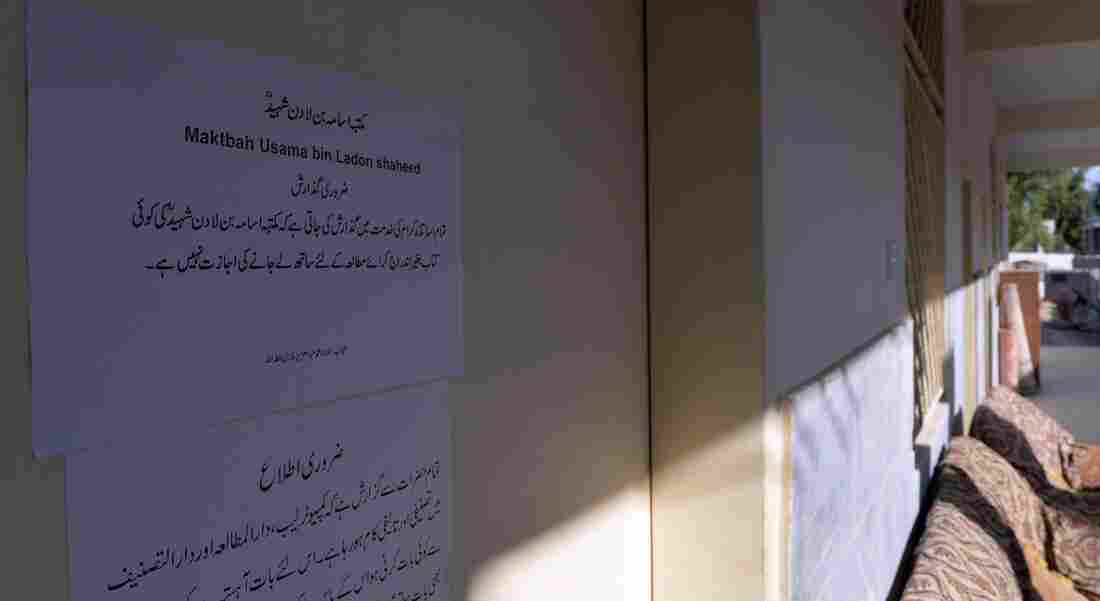 مکتبہ اسامہ بن لادن شہیدؒ
Maktbah Usama bin Ladon shaheed
ضروری گذارش
تمام اساتذہ کرام کی خدمت میں گذارش کی جاتی ہے کہ مکتبہ اسامہ بن لادن شہیدؒ کی کوئی
کتاب بغیر اندراج کرائے مطالعہ کے لئے ساتھ لے جانے کی اجازت نہیں ہے۔
ضروری اطلاع
تمام حضرات سے گزارش ہے کہ کمپیوٹر لیب، دارالمطالعہ اور دارالتصنیف
میں تصنیفی اور تالیفی کام ہورہا ہے۔ اس لئے بات آہستہ
سے کوئی بات کرنی ہو اس کے